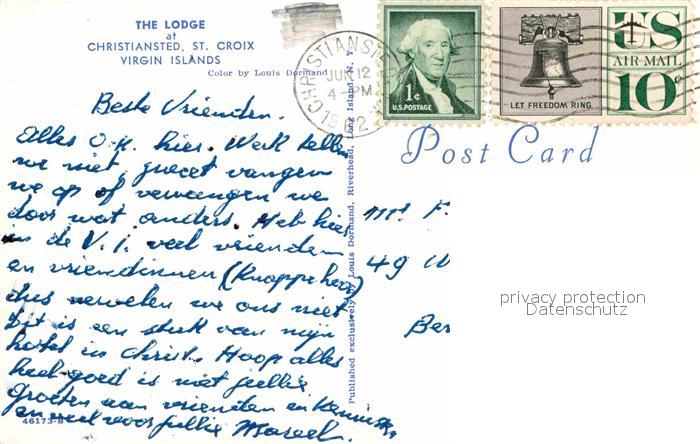 THE LODGE
at
CHRISTIANSTED, ST. CROIX
VIRGIN ISLANDS
Color by Louis Dormand
CHRISTIANSTED
JUN 12
4 PM
1962
1¢
U.S. POSTAGE
LET FREEDOM RING
US
AIR MAIL
10¢
Post Card
Beste Vrienden.
Alles O.K. hier. Werk
we niet, zweet vangen
we op of vervangen we
door wat anders. Heb hier
in de V.I. veel vrienden
en vriendinnen (Knappe
dus vervelen we ons niet
Dit is een stuk van mijn
hotel in Christ. Hoop alles
heel goed is met jullie
Groeten aan vrienden en
en veel voor jullie Marcel.
46173-B
Published exclusively by Louis Dormand, Riverhead, Long Island, N. Y.
49 W
Ber
privacy protection
Datenschutz